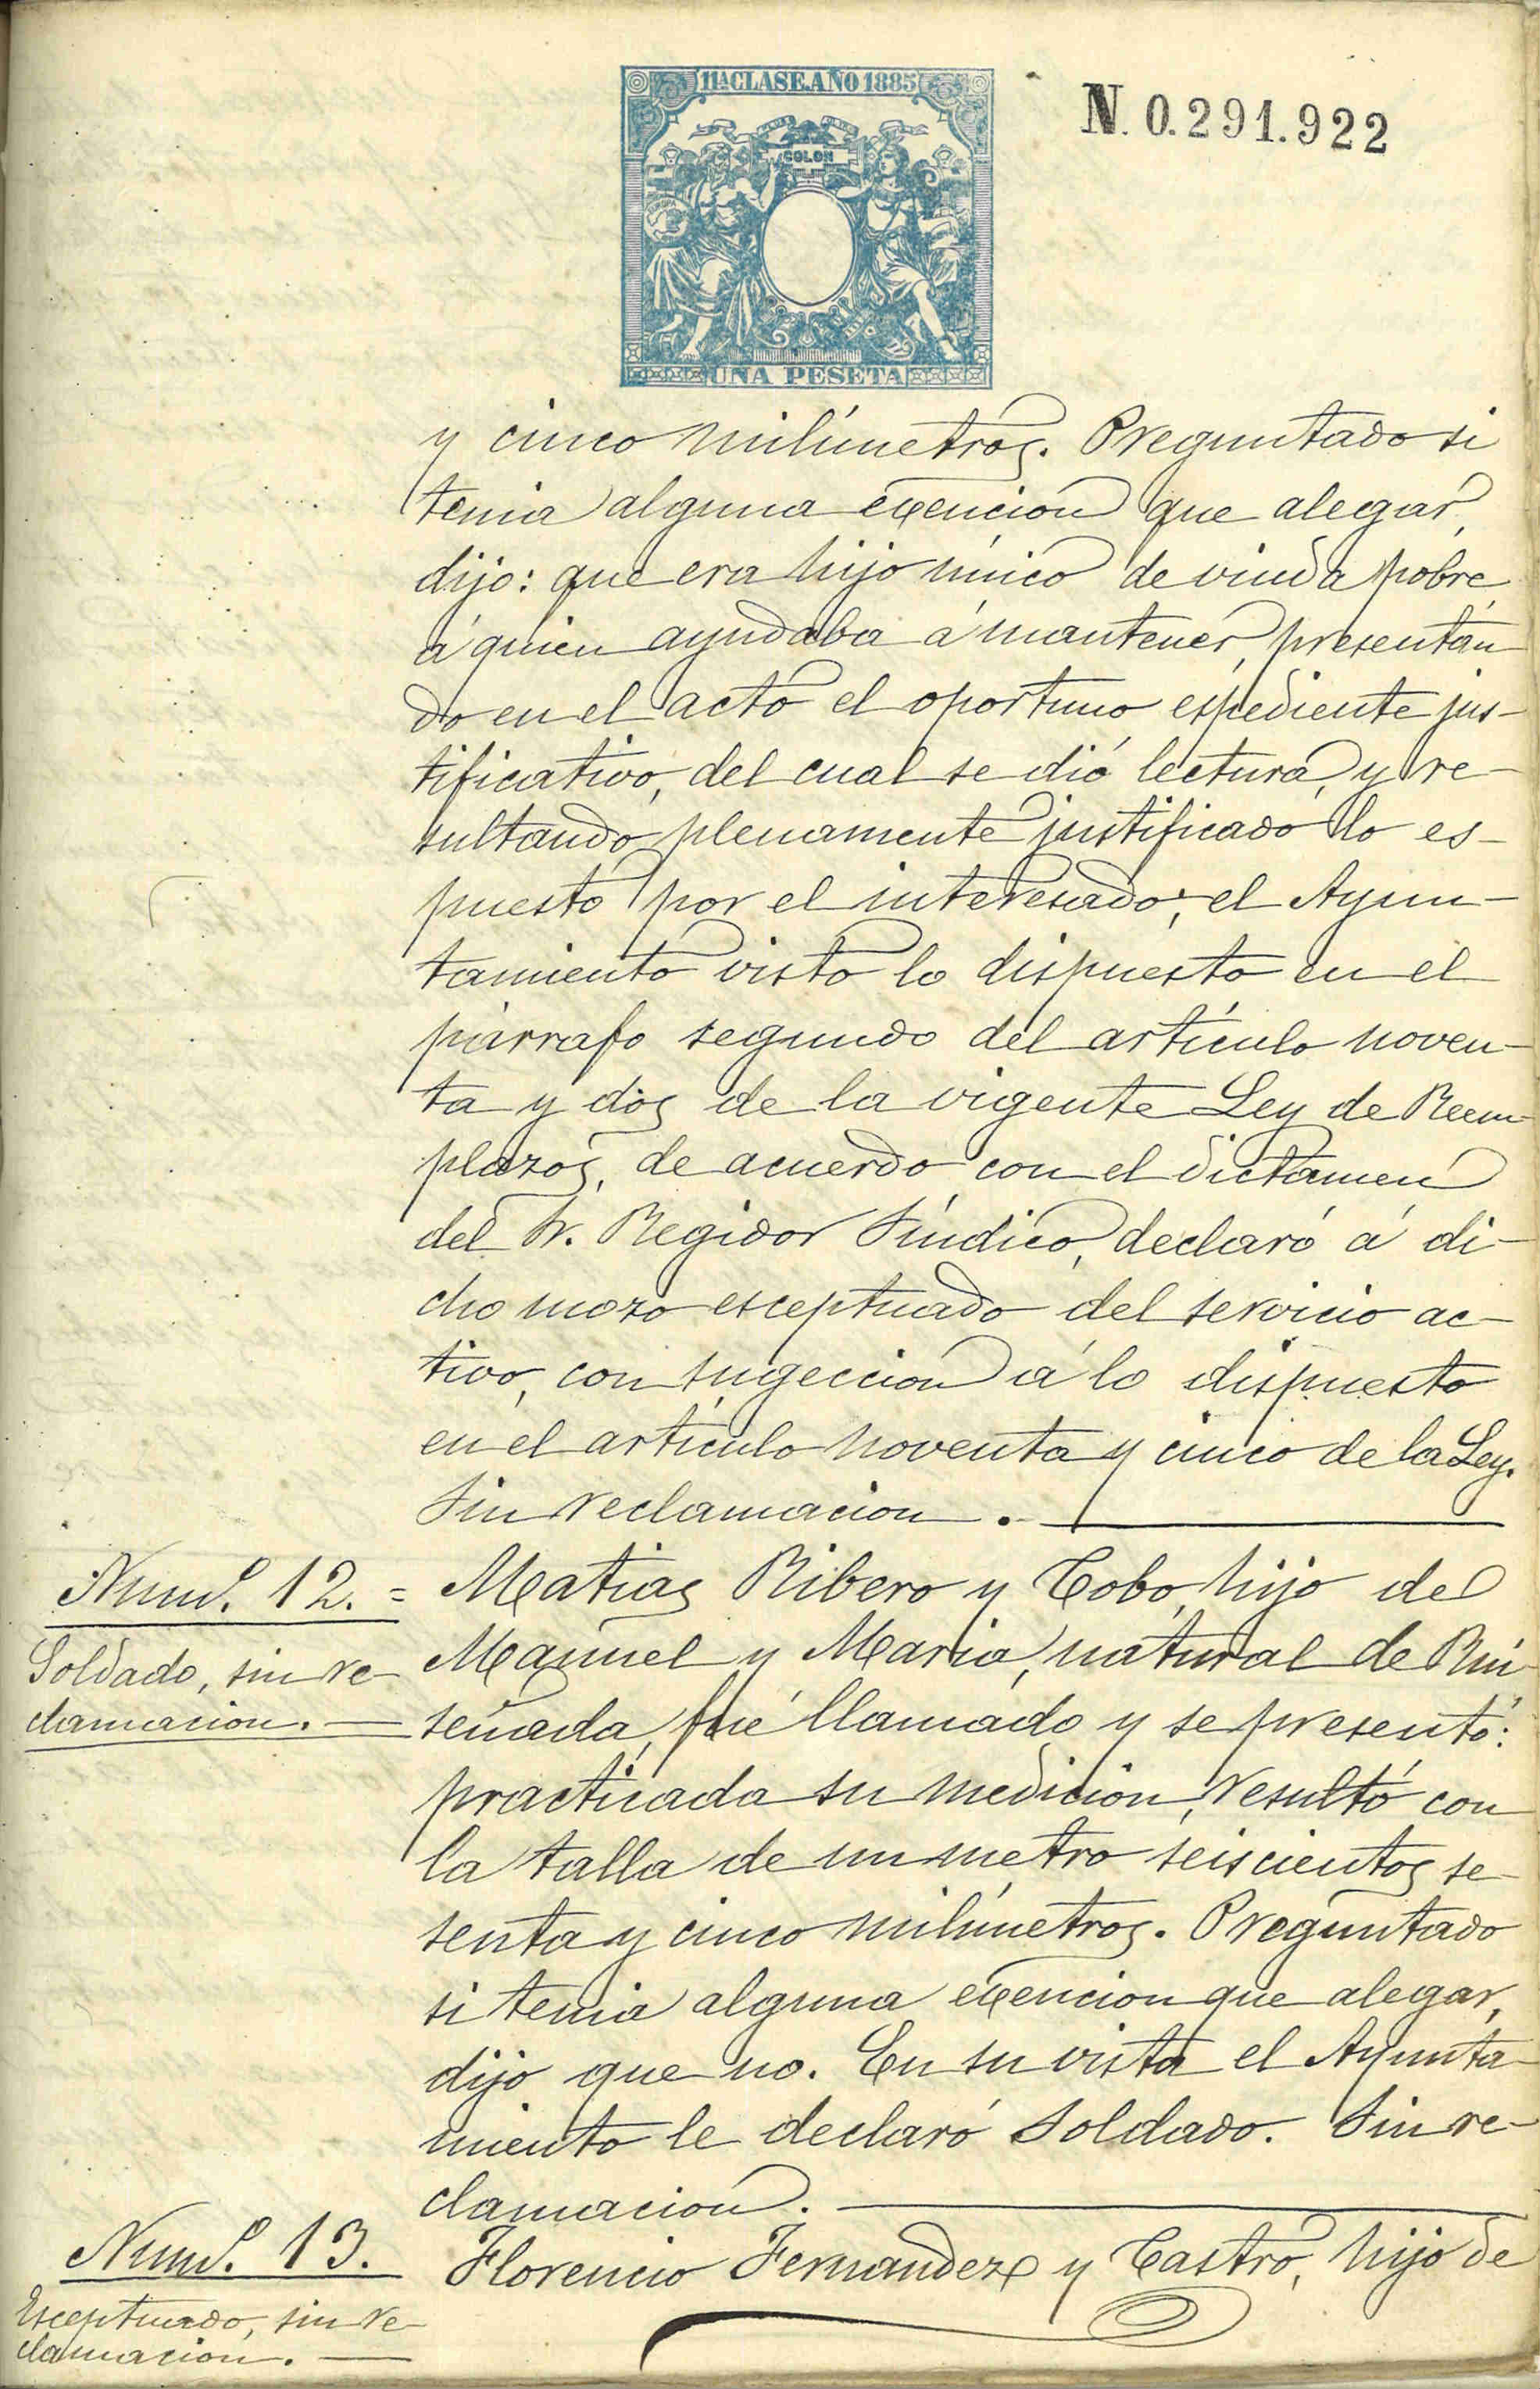 11ª CLASE. AÑO 1885
N. 0.291.922
COLON
EUROPA
UNA PESETA
y cinco milímetros. Preguntado si
tenia alguna exencion que alegar,
dijo: que era hijo único de viuda pobre
á quien ayudaba á mantener, presentán
do en el acto el oportuno espediente jus-
tificativo, del cual se dió lectura, y re-
sultando plenamente justificado lo es-
puesto por el interesado; el Ayun-
tamiento visto lo dispuesto en el
párrafo segundo del artículo noven-
ta y dos de la vigente Ley de Reem-
plazos, de acuerdo con el dictamen
del Sr. Regidor Síndico, declaró á di-
cho mozo esceptuado del servicio ac-
tivo, con sugeccion á lo dispuesto
en el artículo noventa y cinco de la Ley.
Sin reclamacion.
Num.º 12. =
Soldado, sin re-
clamacion.
Matias Ribero y Cobo, hijo de
Manuel y Maria, natural de Rui
señada, fué llamado y se presentó:
practicada su medicion, resultó con
la talla de un metro seiscientos se-
senta y cinco milímetros. Preguntado
si tenia alguna exencion que alegar,
dijo que no. En su vista el Ayunta-
miento le declaró Soldado. Sin re-
clamacion.
Num.º 13.
Esceptuado, sin re-
clamacion.
Florencio Fernandez y Castro, hijo de